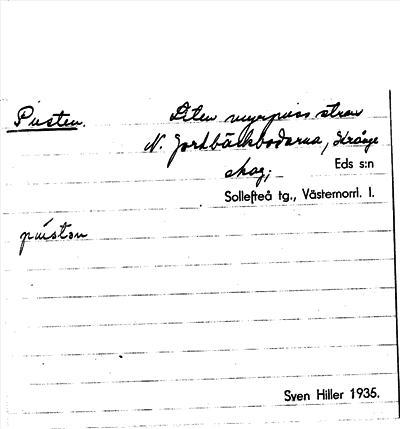 Pusten. Liten myrpuss strax
N. Jortbäcksbodarna, Krånge
skog;
Eds s:n
Sollefteå tg., Västernorrl. l.
pústən
Sven Hiller 1935.